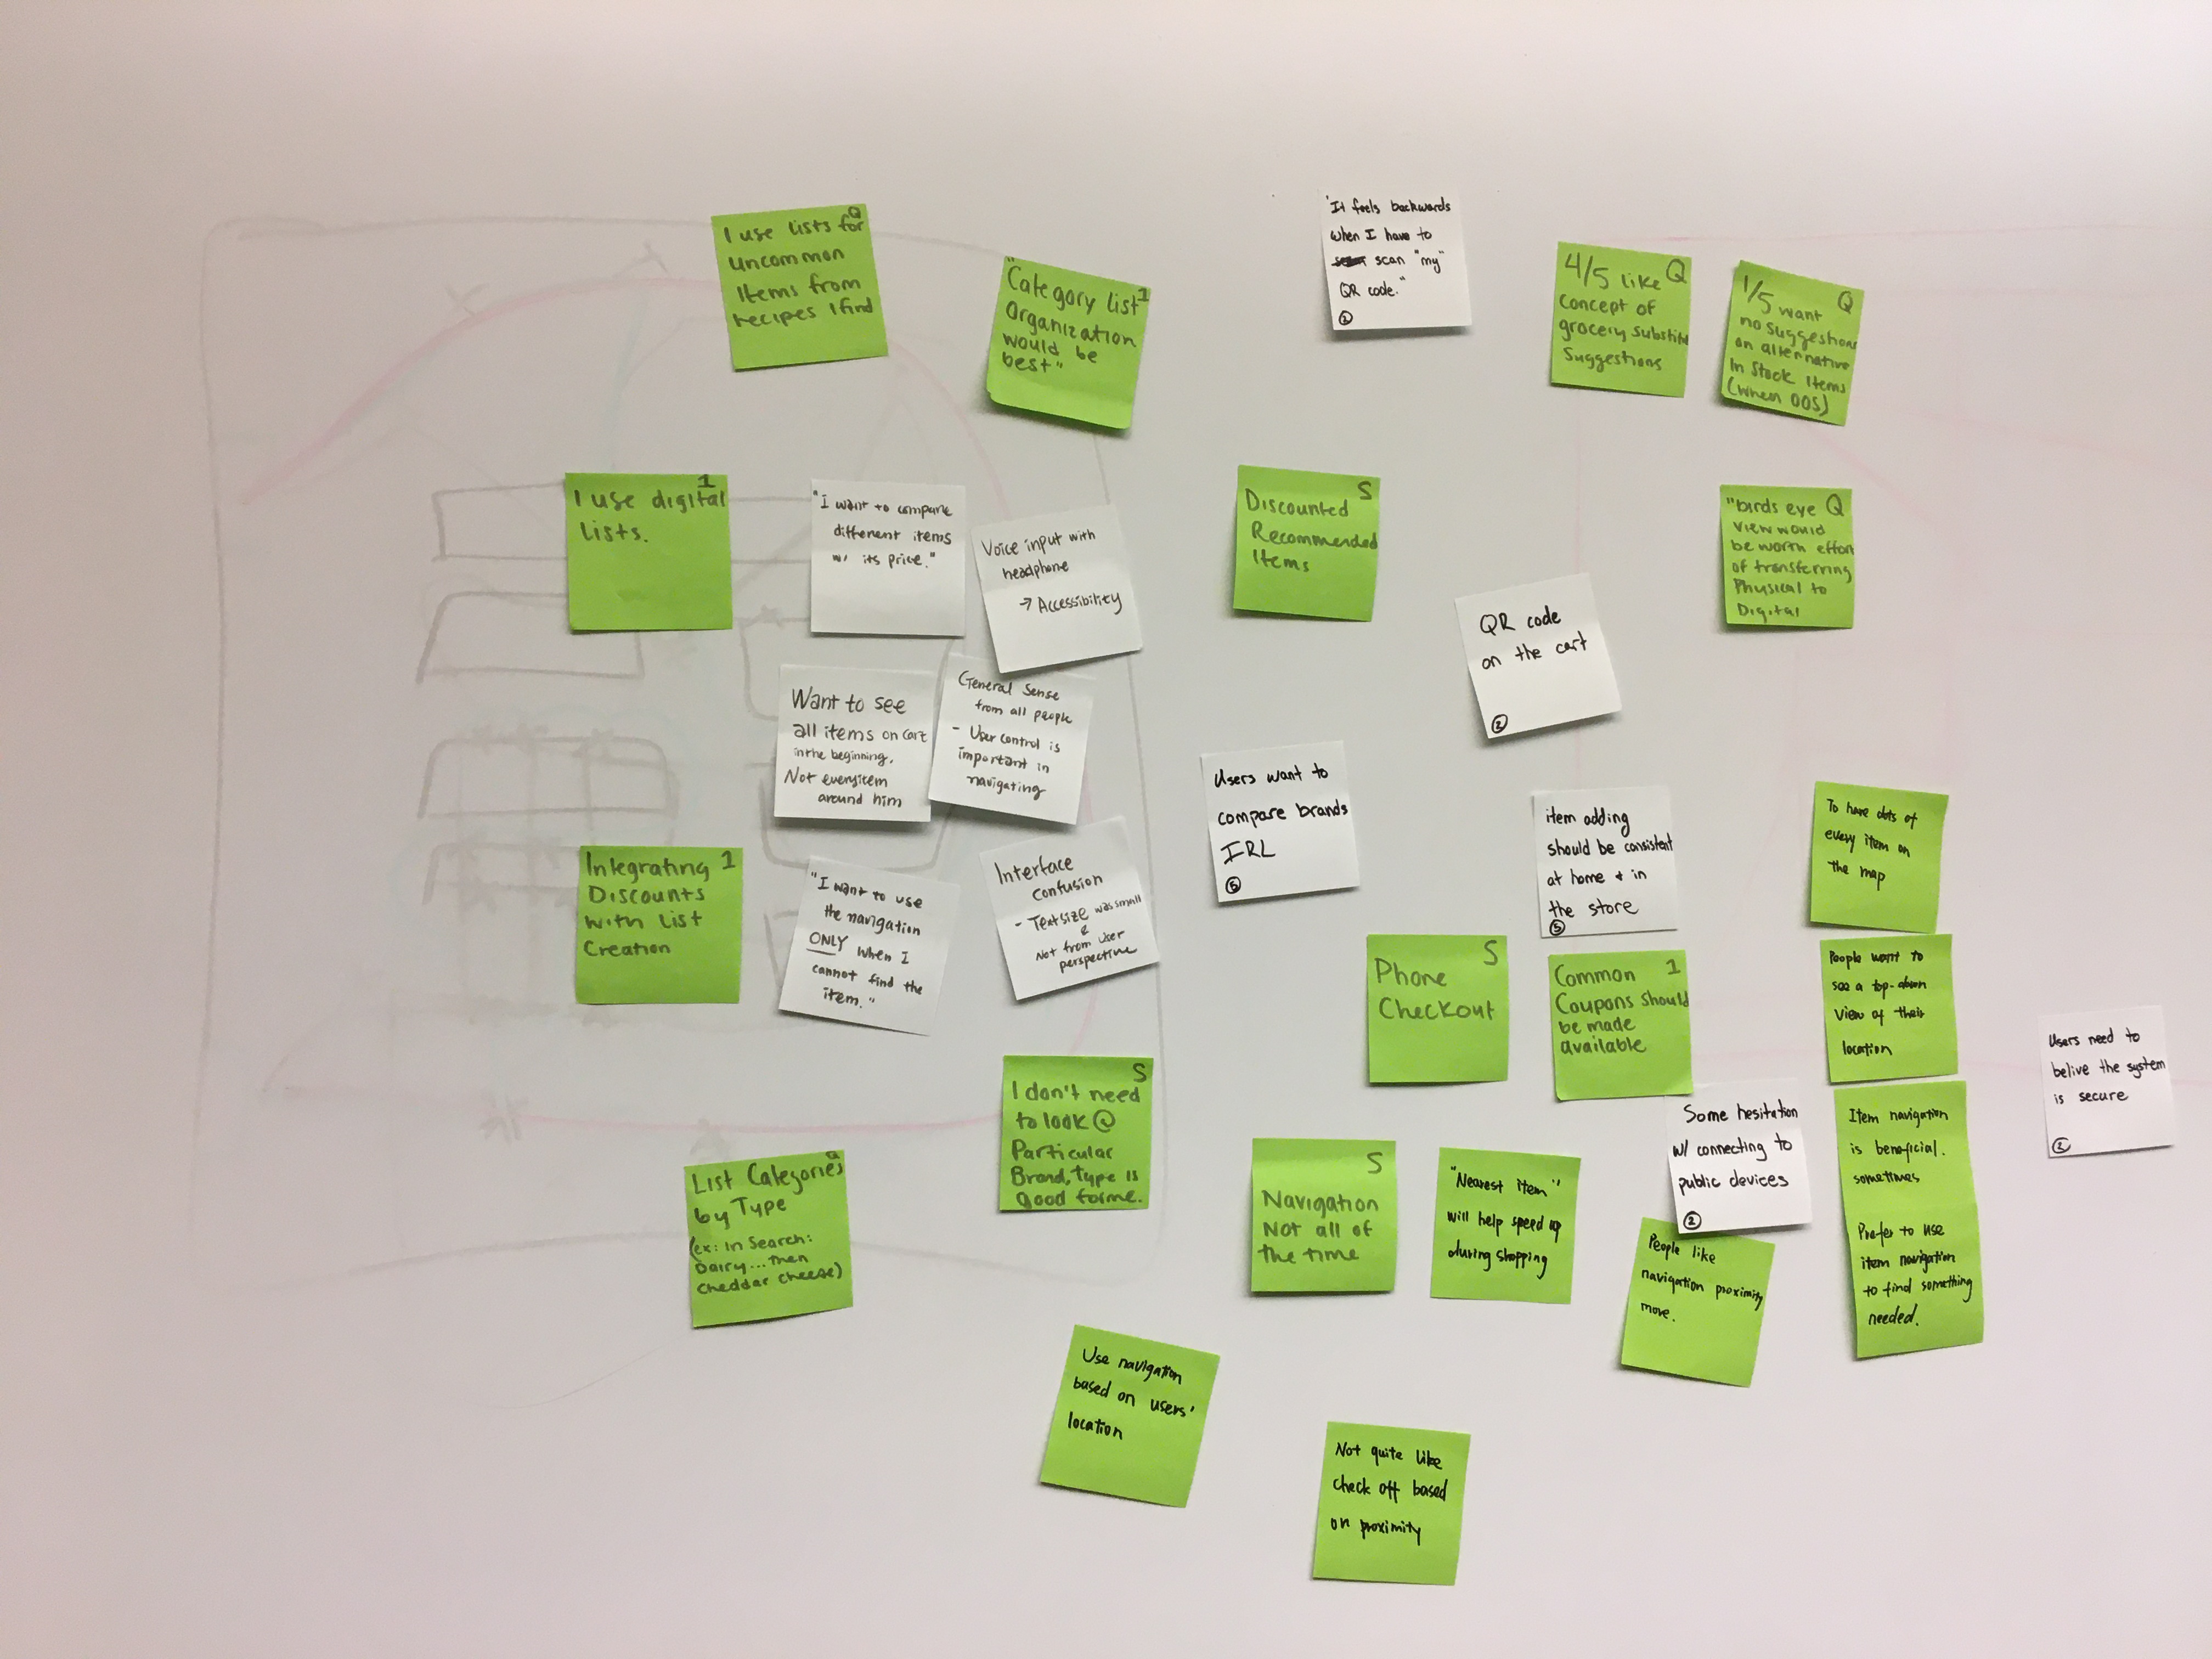 I use lists for Q
uncommon
Items from
recipes I find
"Category list 1
Organization
would be
best"
"It feels backwards
when I have to
scan "my"
QR code."
2
4/5 like Q
concept of
grocery substitu
Suggestions
1/5 want Q
no suggestions
on alternative
In Stock Items
(when OOS)
1
I use digital
Lists.
"I want to compare
different items
w/ its price."
Voice input with
headphone
→ Accessibility
Discounted S
Recommended
Items
"birds eye Q
View would
be worth effort
of transferring
Physical to
Digital
QR code
on the cart
2
Want to see
all items on cart
in the beginning.
Not every item
around him
General Sense
from all people
- User control is
important in
navigating
Users want to
compare brands
IRL
5
item adding
should be consistent
at home & in
the store
5
To have dots of
every item on
the map
Integrating 1
Discounts
with List
Creation
"I want to use
the navigation
ONLY when I
cannot find the
item."
Interface
confusion
- Text size was small
&
Not from user
perspective
Phone S
Checkout
Common 1
Coupons should
be made
available
People want to
see a top-down
view of their
location
Users need to
belive the system
is secure
2
S
I don't need
to look @
Particular
Brand, Type is
good for me.
Some hesitation
w/ connecting to
public devices
2
Item navigation
is beneficial.
sometimes
Prefer to use
item navigation
to find something
needed.
List Categories Q
by Type
(ex: In Search:
Dairy...then
cheddar cheese)
S
Navigation
Not all of
the time
"Nearest item"
will help speed up
during shopping
People like
navigation proximity
more.
Use navigation
based on users'
location
Not quite like
check off based
on proximity